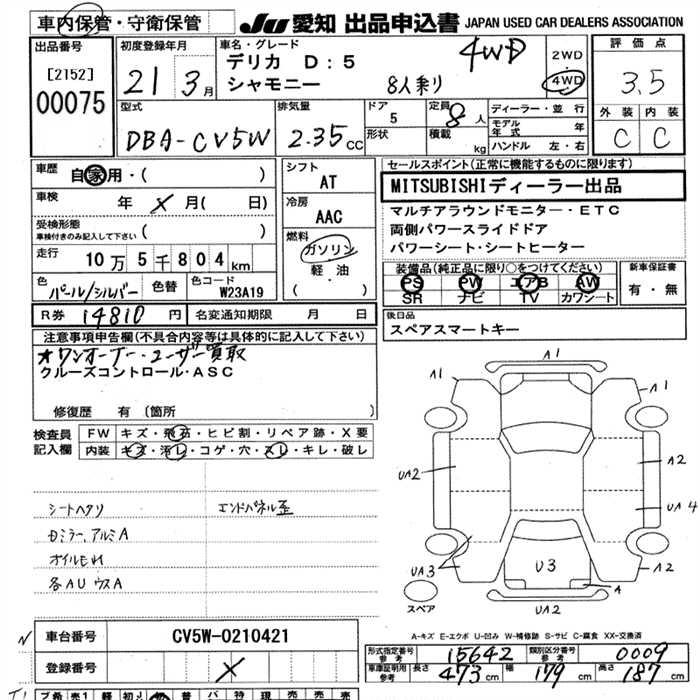 車内保管・守衛保管
JU 愛知 出品申込書 JAPAN USED CAR DEALERS ASSOCIATION
出品番号
[2152]
00075
初度登録年月
21 3月
車名・グレード
デリカ D：5
シャモニー
4WD
8人乗り
2WD
4WD
評価点
3.5
外装 内装
C C
型式
DBA-CV5W
排気量
2.35CC
ドア
5
形状
定員
8人
積載
kg
ディーラー・並行
モデル年式 年
ハンドル 左・右
車歴
自家用・( )
車検 年 ×月( 日)
受検形態
車検付きのみ記入して下さい ( )
走行 10万5千804km
色 パール/シルバー 色替
色コード
W23A19
シフト
AT
冷房
AAC
燃料
ガソリン
軽・油
( )
セールスポイント(正常に機能するものに限ります)
MITSUBISHIディーラー出品
マルチアラウンドモニター・ETC
両側パワースライドドア
パワーシート・シートヒーター
装備品(純正品に限り○をつけてください)
PS PW エアB AW
SR ナビ TV カワシート
新車保証書
有・無
R券 14810円 名変通知期限 月 日
後日品
スペアスマートキー
注意事項申告欄(不具合内容等は具体的に記入して下さい)
★ワンオーナー・ユーザー買取
クルーズコントロール・ASC
修復歴 有 (箇所 )
検査員
記入欄
FW キズ・飛石・ヒビ割・リペア跡・X要
内装 キズ・汚レ・コゲ・穴・スレ・キレ・破レ
シートヘタリ エンドパネル歪
ロミラー、アルミA
オイルモレ
各AUウスA
A1
A1
A1
UA2
A2
UA4
UA3
U3
A2
A
UA2
スペア
A-キズ E-エクボ U-凹み W-補修跡 S-サビ C-腐食 XX-交換済
車台番号 CV5W-0210421
登録番号 ×
形式指定番号
参考
15642
類別区分番号
参考
0009
車庫証明用
参考
長さ 473cm 幅 179cm 高さ 187cm